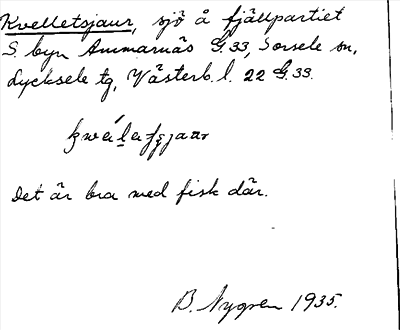 Kvelletsjaur, sjö å fjällpartiet
S. byn Ammarnäs G.33, Sorsele sn,
Lycksele tg, Västerb. l. 22 G.33.
Det är bra med fisk där.
B. Nygren 1935.